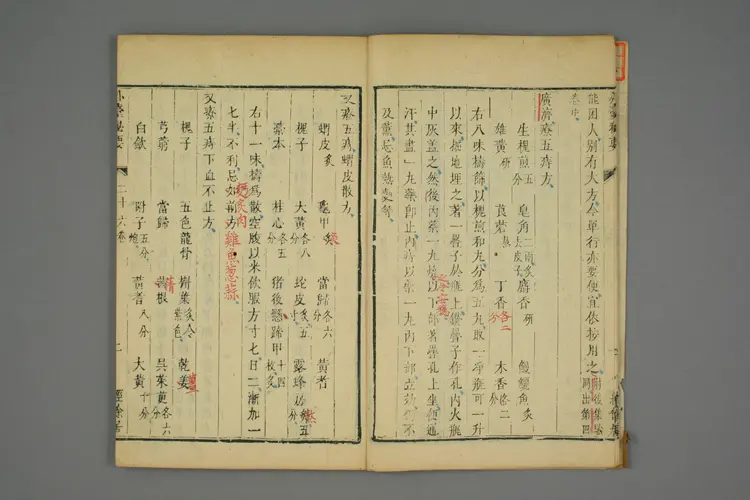 能困人別有大方今單行亦要便宜依按用之
卷中
廣濟療五痔方
生槐煎五分 皂角二兩炙 麝香研 鰻鱺魚炙
雄黃研 莨菪熬 丁香 木香各二分
右八味擣篩以槐煎和丸分爲五丸取一淨瓶可一升
以來掘地埋之著一疊子於瓶上鑽疊子作孔內火瓶
中灰蓋之然後內藥一丸燒以下部著疊孔上坐便通
汗其盡一丸藥即止內痔以藥一丸內下部立效仍不
及薰忌魚熱麪等
又療五痔蝟皮散方
蝟皮炙 龜甲炙 當歸各六分 黃耆
槐子 大黃各八分 蛇皮炙五寸 露蜂房炙五分
藁本 桂心各五分 猪後懸蹄甲十四枚炙
右十一味擣爲散空腹以米飲服方寸匕日二漸加一
匕半不利忌如前方
雞魚蔥蒜
又療五痔下血不止方
槐子 五色龍骨 槲葉炙令紫色 乾薑
芎藭 當歸 茜根 吳茱萸各六分
白斂 附子五分炮 黃耆八分 大黃十分
外臺秘要 二十六卷 二 經餘居